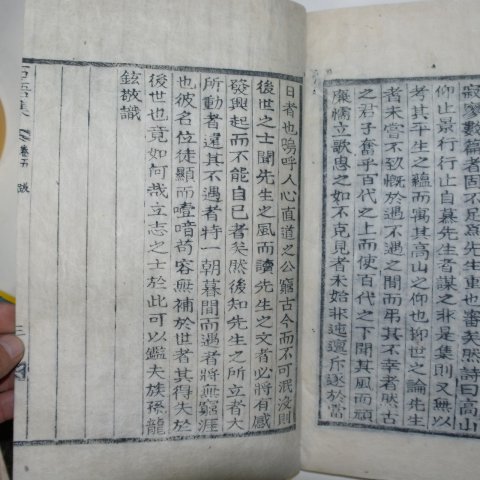 寂寥數篇者固不足爲先生重也審矣然詩曰高山
仰止景行行止自慕先生者謀之非是集則又無以
考其平生之蘊而寓其高山之仰也抑世之論先生
者未嘗不致慨於遇不遇之間而弔其不幸者然古
之君子奮乎百代之上而使百代之下聞其風而頑
廉懦立歌思之如不克見者未始非迍邅斥逐於當
日者也嗚呼人心直道之公窮古今而不可泯沒則
後世之士聞先生之風而讀先生之文者必將有感
發興起而不能自已者矣然後知先生之所立者大
所動者遲其不遇者特一朝暮間而遇者將無窮涯
也彼名位徒顯而噎喑苟容無補於世者其得失於
後世也竟如何哉立志之士於此可以鑑夫族孫龍
鉉敬識
集 卷五 跋